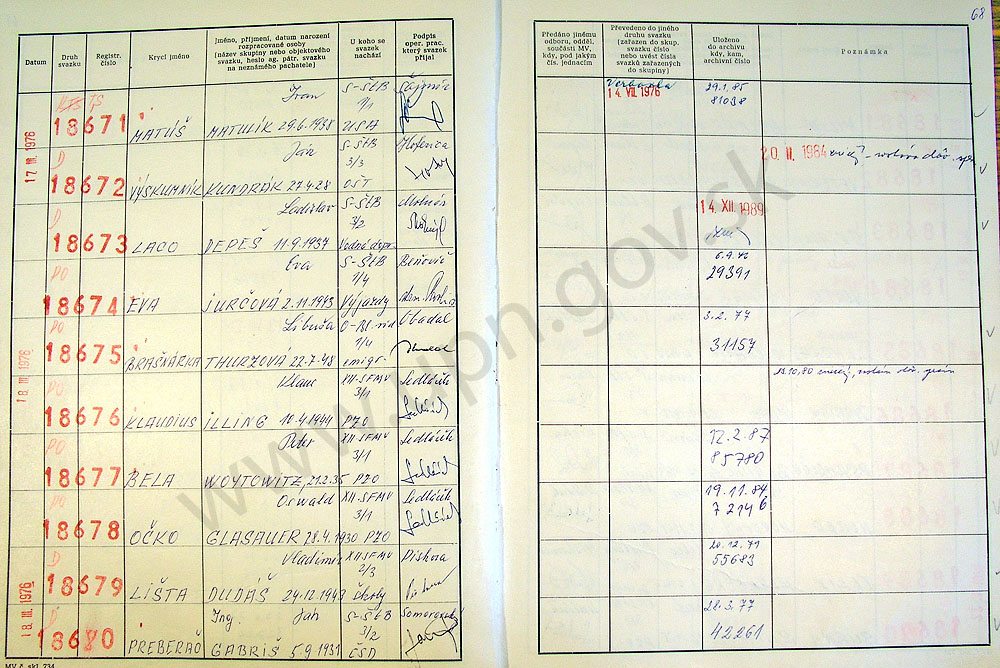 68
Datum
Druh svazku
Registr. číslo
Krycí jméno
Jméno, příjmení, datum narození
rozpracované osoby
(název skupiny nebo objektového
svazku, heslo ag. pátr. svazku
na neznámého pachatele)
U koho se
svazek
nachází
Podpis
oper. prac.
který svazek
přijal
Předáno jinému
odboru, odděl.
součásti MV,
kdy, pod jakým
čís. jednacím
Převedeno do jiného
druhu svazku
(zařazen do skup.
svazku číslo
nebo uvést čísla
svazků zařazených
do skupiny)
Uloženo
do archivu
kdy, kam,
archivní číslo
Poznámka
17 III. 1976
TS Ivan S-ŠtB
1/1
18671 MATÚŠ MATULÍK 29.6.1938 USA
14. VII. 1976
29.1.85
81038
D Ján S-ŠtB Hofierica
3/3
18672 VÝSKUMNÍK KUNDRÁK 27.4.28 OŠT
20. II. 1984
D Ladislav S-ŠtB Molnár
3/2
18673 LACO DEPEŠ 11.9.1937 Vodné
14. XII. 1989
PO Eva S-ŠtB Beňovič
1/4
18674 EVA JURČOVÁ 2.11.1943 Výjazdy
29391
18. III. 1976
PO Libuša Obadal
1/4
18675 BRAŠNÁRKA THURZOVÁ 22.7.48 emigr.
3.2.77
31157
PO Klaus XII-SFMV Sedláček
3/1
18676 KLAUDIUS ILLING 10.4.1944 PZO
13.10.80
PO Peter XII-SFMV Sedláček
3/1
18677 BELA WOYTOWITZ, 21.2.35 PZO
12.2.87
85780
PO Oswald XII-SFMV Sedláček
3/1
18678 OČKO GLASAUER 28.4.1930 PZO
19.11.84
72146
D Vladimír XII-SFMV Piškora
2/3
18679 LIŠTA DUDÁŠ 24.12.1948 školy
20.12.79
55683
18. III. 1976
D Ing. Ján S-ŠtB
3/2
18680 PREBERAČ GABRIŠ 5.9.1931 ČSD
28.3.77
42261
MV č. skl. 734
www.upn.gov.sk